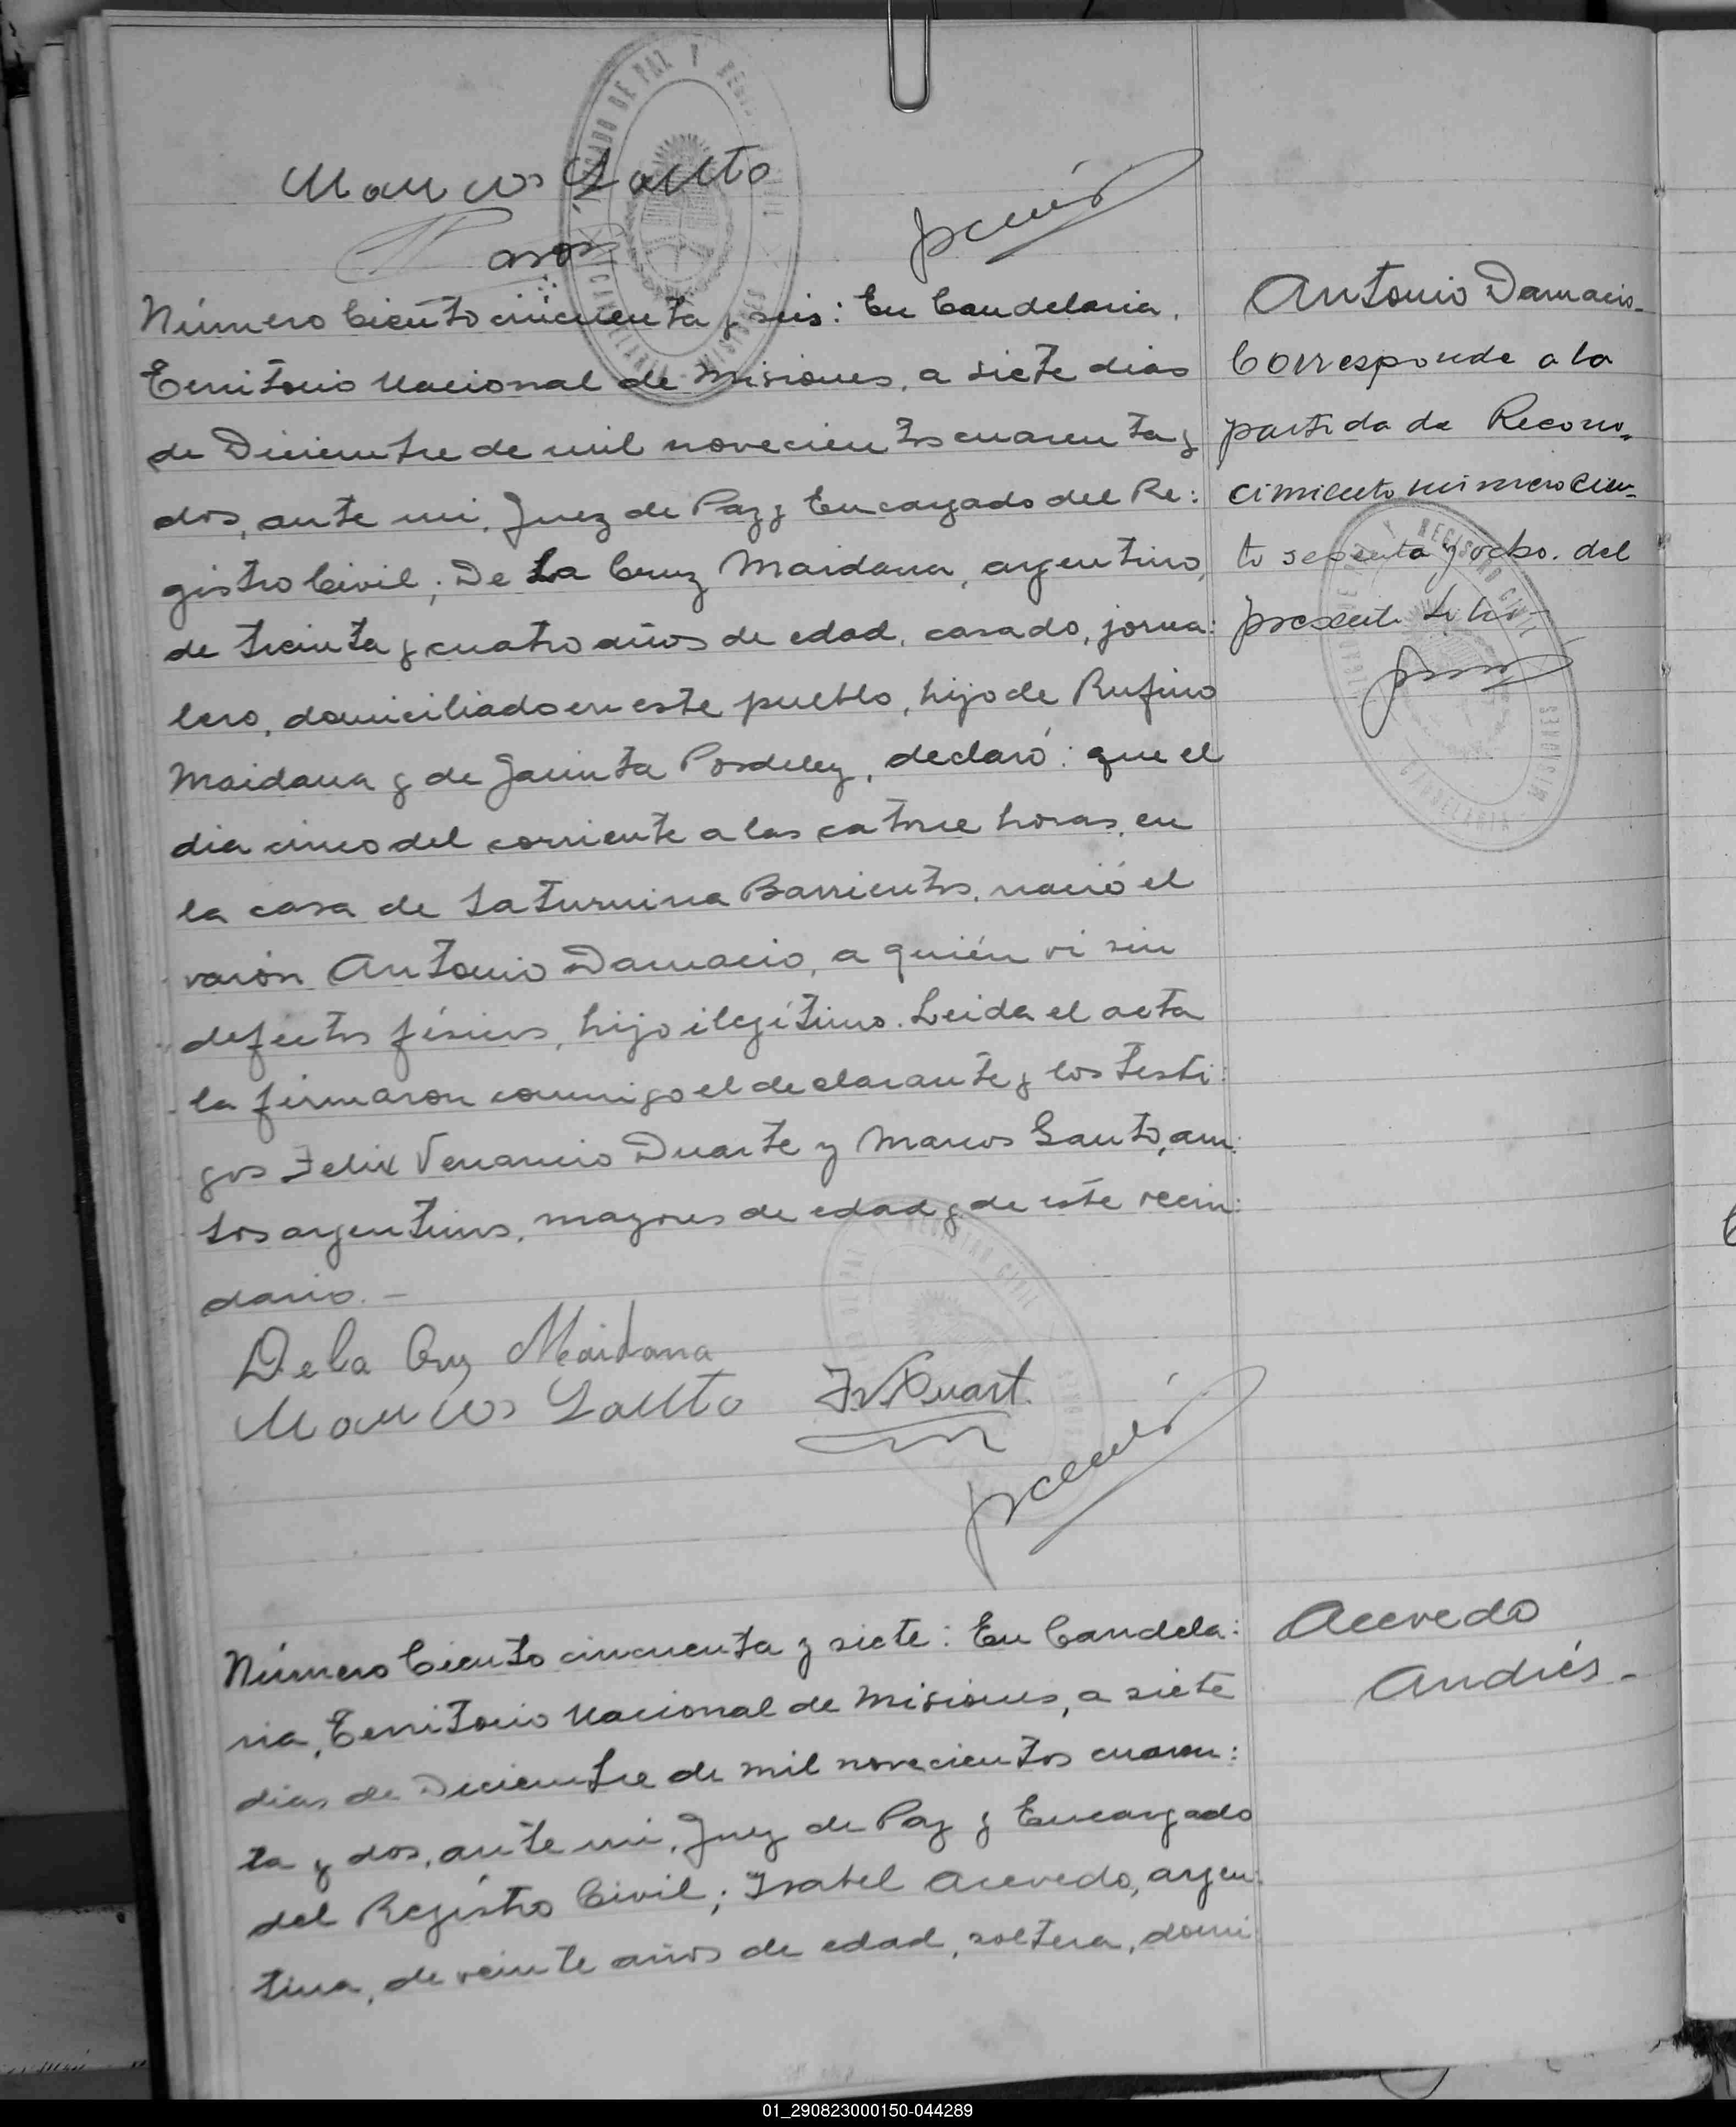 Marcos Sauto
Número Ciento cincuenta y seis: En Candelaria,
Territorio Nacional de Misiones, a siete dias
de Diciembre de mil novecientos cuarenta y
dos, ante mi, Juez de Paz y Encargado del Re:
gistro Civil; De La Cruz Maidana, argentino,
de treinta y cuatro años de edad, casado, jorna:
lero, domiciliado en este pueblo, hijo de Rufino
Maidana y de Jacinta Posdeley, declaró: que el
dia cinco del corriente a las catorce horas, en
la casa de Saturnina Barrientos, nació el
varón Antonio Damacio, a quién vi sin
defectos físicos, hijo ilegítimo. Leida el acta
la firmaron conmigo el declarante y los testi:
gos Felix Venancio Duarte y Marcos Sauto, am:
bos argentinos, mayores de edad y de este vecin:
dario. -
De la Cruz Maidana
Marcos Sauto F V Duart
Antonio Damacio-
Corresponde a la
partida de Recono-
cimiento número cien-
to sesenta y ocho. del
presente Libro
JUZGADO DE PAZ Y REGISTRO CIVIL
CANDELARIA
MISIONES
Número Ciento cincuenta y siete: En Candela:
ria, Territorio Nacional de Misiones, a siete
dias de Diciembre de mil novecientos cuaren:
ta y dos, ante mi, Juez de Paz y Encargado
del Registro Civil; Isabel Acevedo, argen:
tina, de veinte años de edad, soltera, domi
Acevedo
Andrés-
01_290823000150-044289